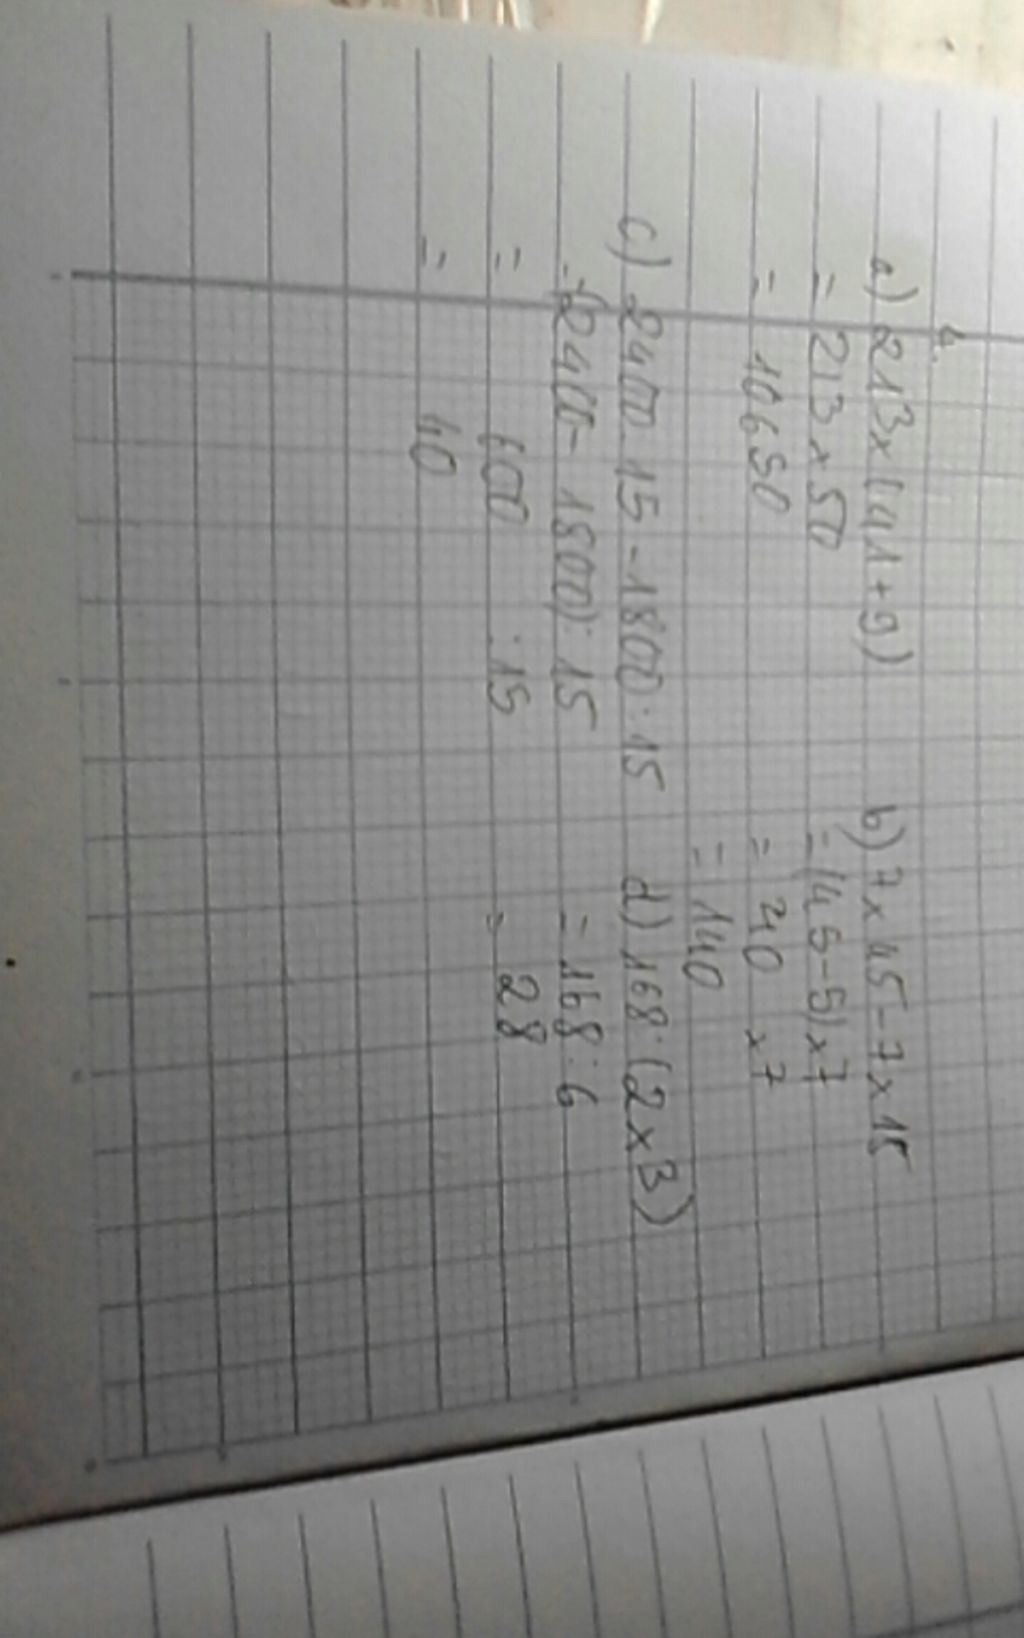 4.
a) 213 x (41 + 9)
= 213 x 50
= 10650
b) 7 x 45 - 7 x 15
= (45 - 5) x 7
= 40 x 7
= 140
c) 2400 : 15 - 1800 : 15
= (2400 - 1800) : 15
= 600 : 15
= 40
d) 168 : (2 x 3)
= 168 : 6
= 28